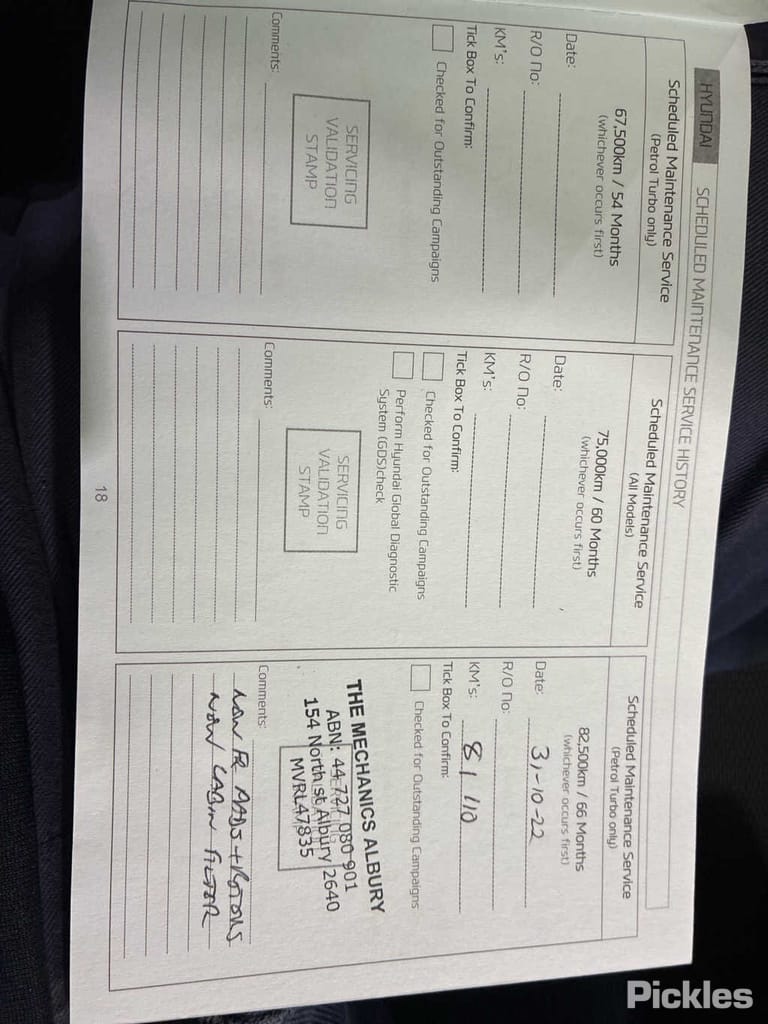 HYUNDAI
SCHEDULED MAINTENANCE SERVICE HISTORY
Scheduled Maintenance Service
(Petrol Turbo only)
67,500km / 54 Months
(whichever occurs first)
Date:
R/O No:
KM's:
Tick Box To Confirm:
Checked for Outstanding Campaigns
SERVICING
VALIDATION
STAMP
Comments:
Scheduled Maintenance Service
(All Models)
75,000km / 60 Months
(whichever occurs first)
Date:
R/O No:
KM's:
Tick Box To Confirm:
Checked for Outstanding Campaigns
Perform Hyundai Global Diagnostic
System (GDS)check
SERVICING
VALIDATION
STAMP
Comments:
Scheduled Maintenance Service
(Petrol Turbo only)
82,500km / 66 Months
(whichever occurs first)
Date: 31-10-22
R/O No:
KM's: 81110
Tick Box To Confirm:
Checked for Outstanding Campaigns
THE MECHANICS ALBURY
ABN: 44 727 080 901
154 North st Albury 2640
MVRL47835
Comments:
PADS + ROTORS
CABIN FILTER
18
Pickles